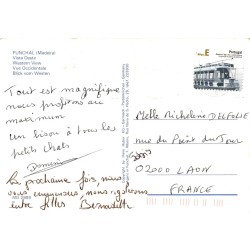 FUNCHAL (Madeira)
Vista Oeste
Western View
Vue Occidentale
Blick vom Westen
Tout est magnifique
nous profitons au
maximum
un bisou à tous les
petits chats
Dominique
La prochaine fois nous
vous emmenons, nous rigolerons
entre filles Bernadette
E
Portugal
Melle Micheline DELFOLIE
rue du Point du Jour
02000 LAON
FRANCE